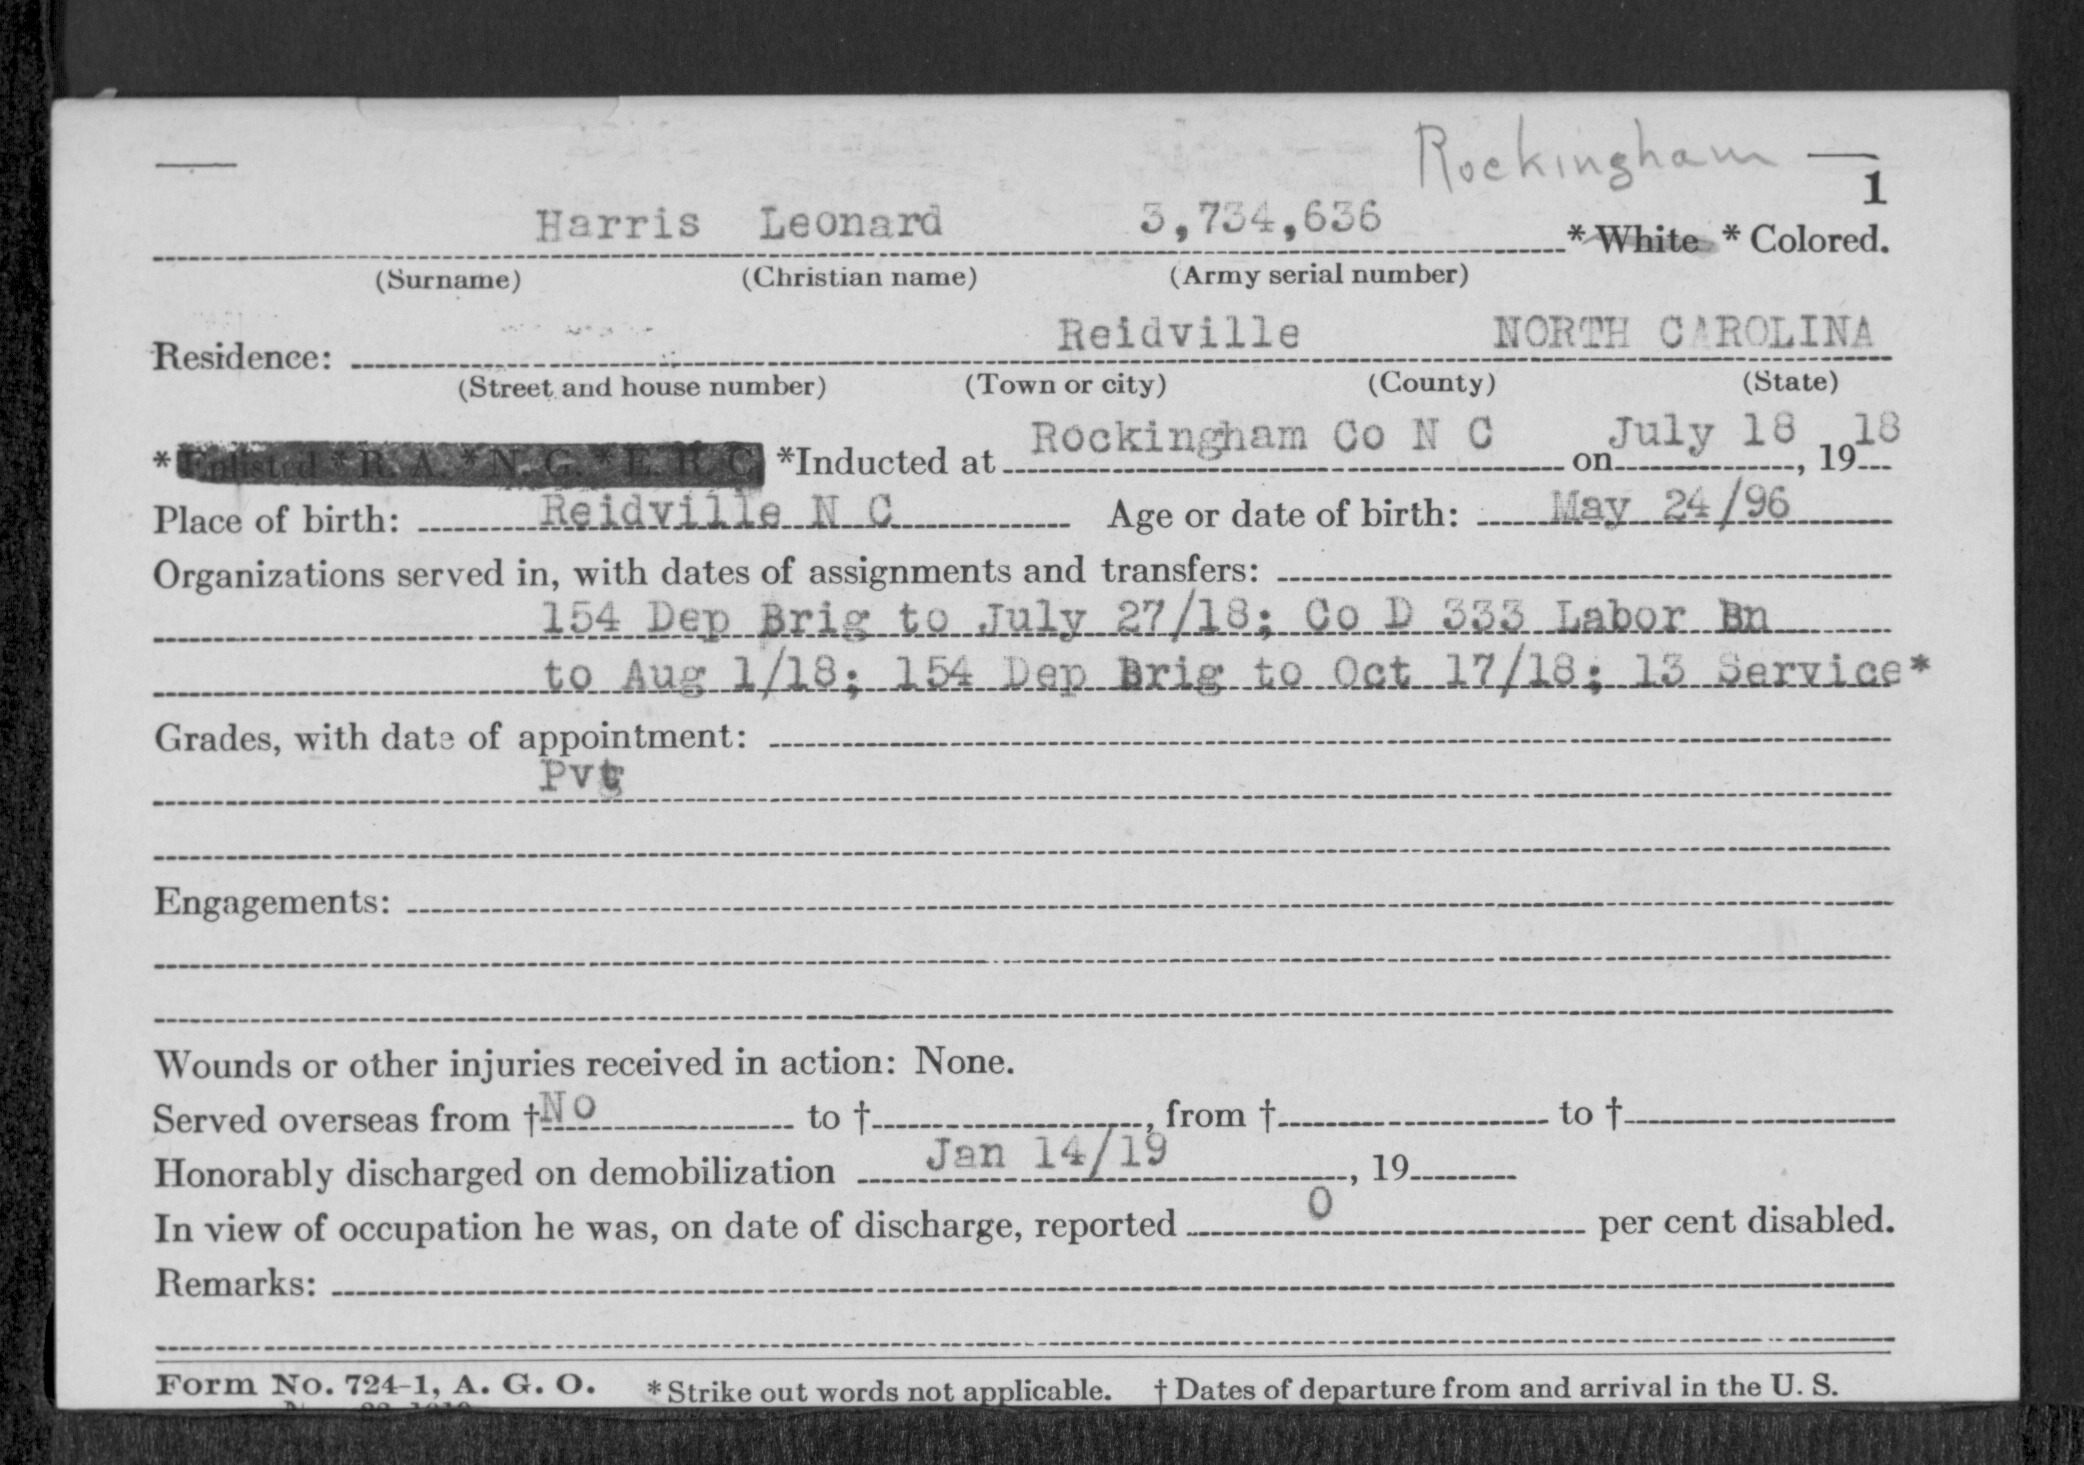 Rockingham
1
Harris Leonard 3,734,636 * White * Colored.
(Surname) (Christian name) (Army serial number)
Reidville NORTH CAROLINA
Residence:
(Street and house number) (Town or city) (County) (State)
* Enlisted * R. A. * N. G. * E. R. C. *Inducted at Rockingham Co N C on July 18, 1918
Place of birth: Reidville N C Age or date of birth: May 24/96
Organizations served in, with dates of assignments and transfers:
154 Dep Brig to July 27/18; Co D 333 Labor Bn
to Aug 1/18; 154 Dep Brig to Oct 17/18; 13 Service*
Grades, with date of appointment:
Pvt
Engagements:
Wounds or other injuries received in action: None.
Served overseas from † No to †, from † to †
Honorably discharged on demobilization Jan 14/19, 19
In view of occupation he was, on date of discharge, reported 0 per cent disabled.
Remarks:
Form No. 724-1, A. G. O. * Strike out words not applicable. † Dates of departure from and arrival in the U. S.